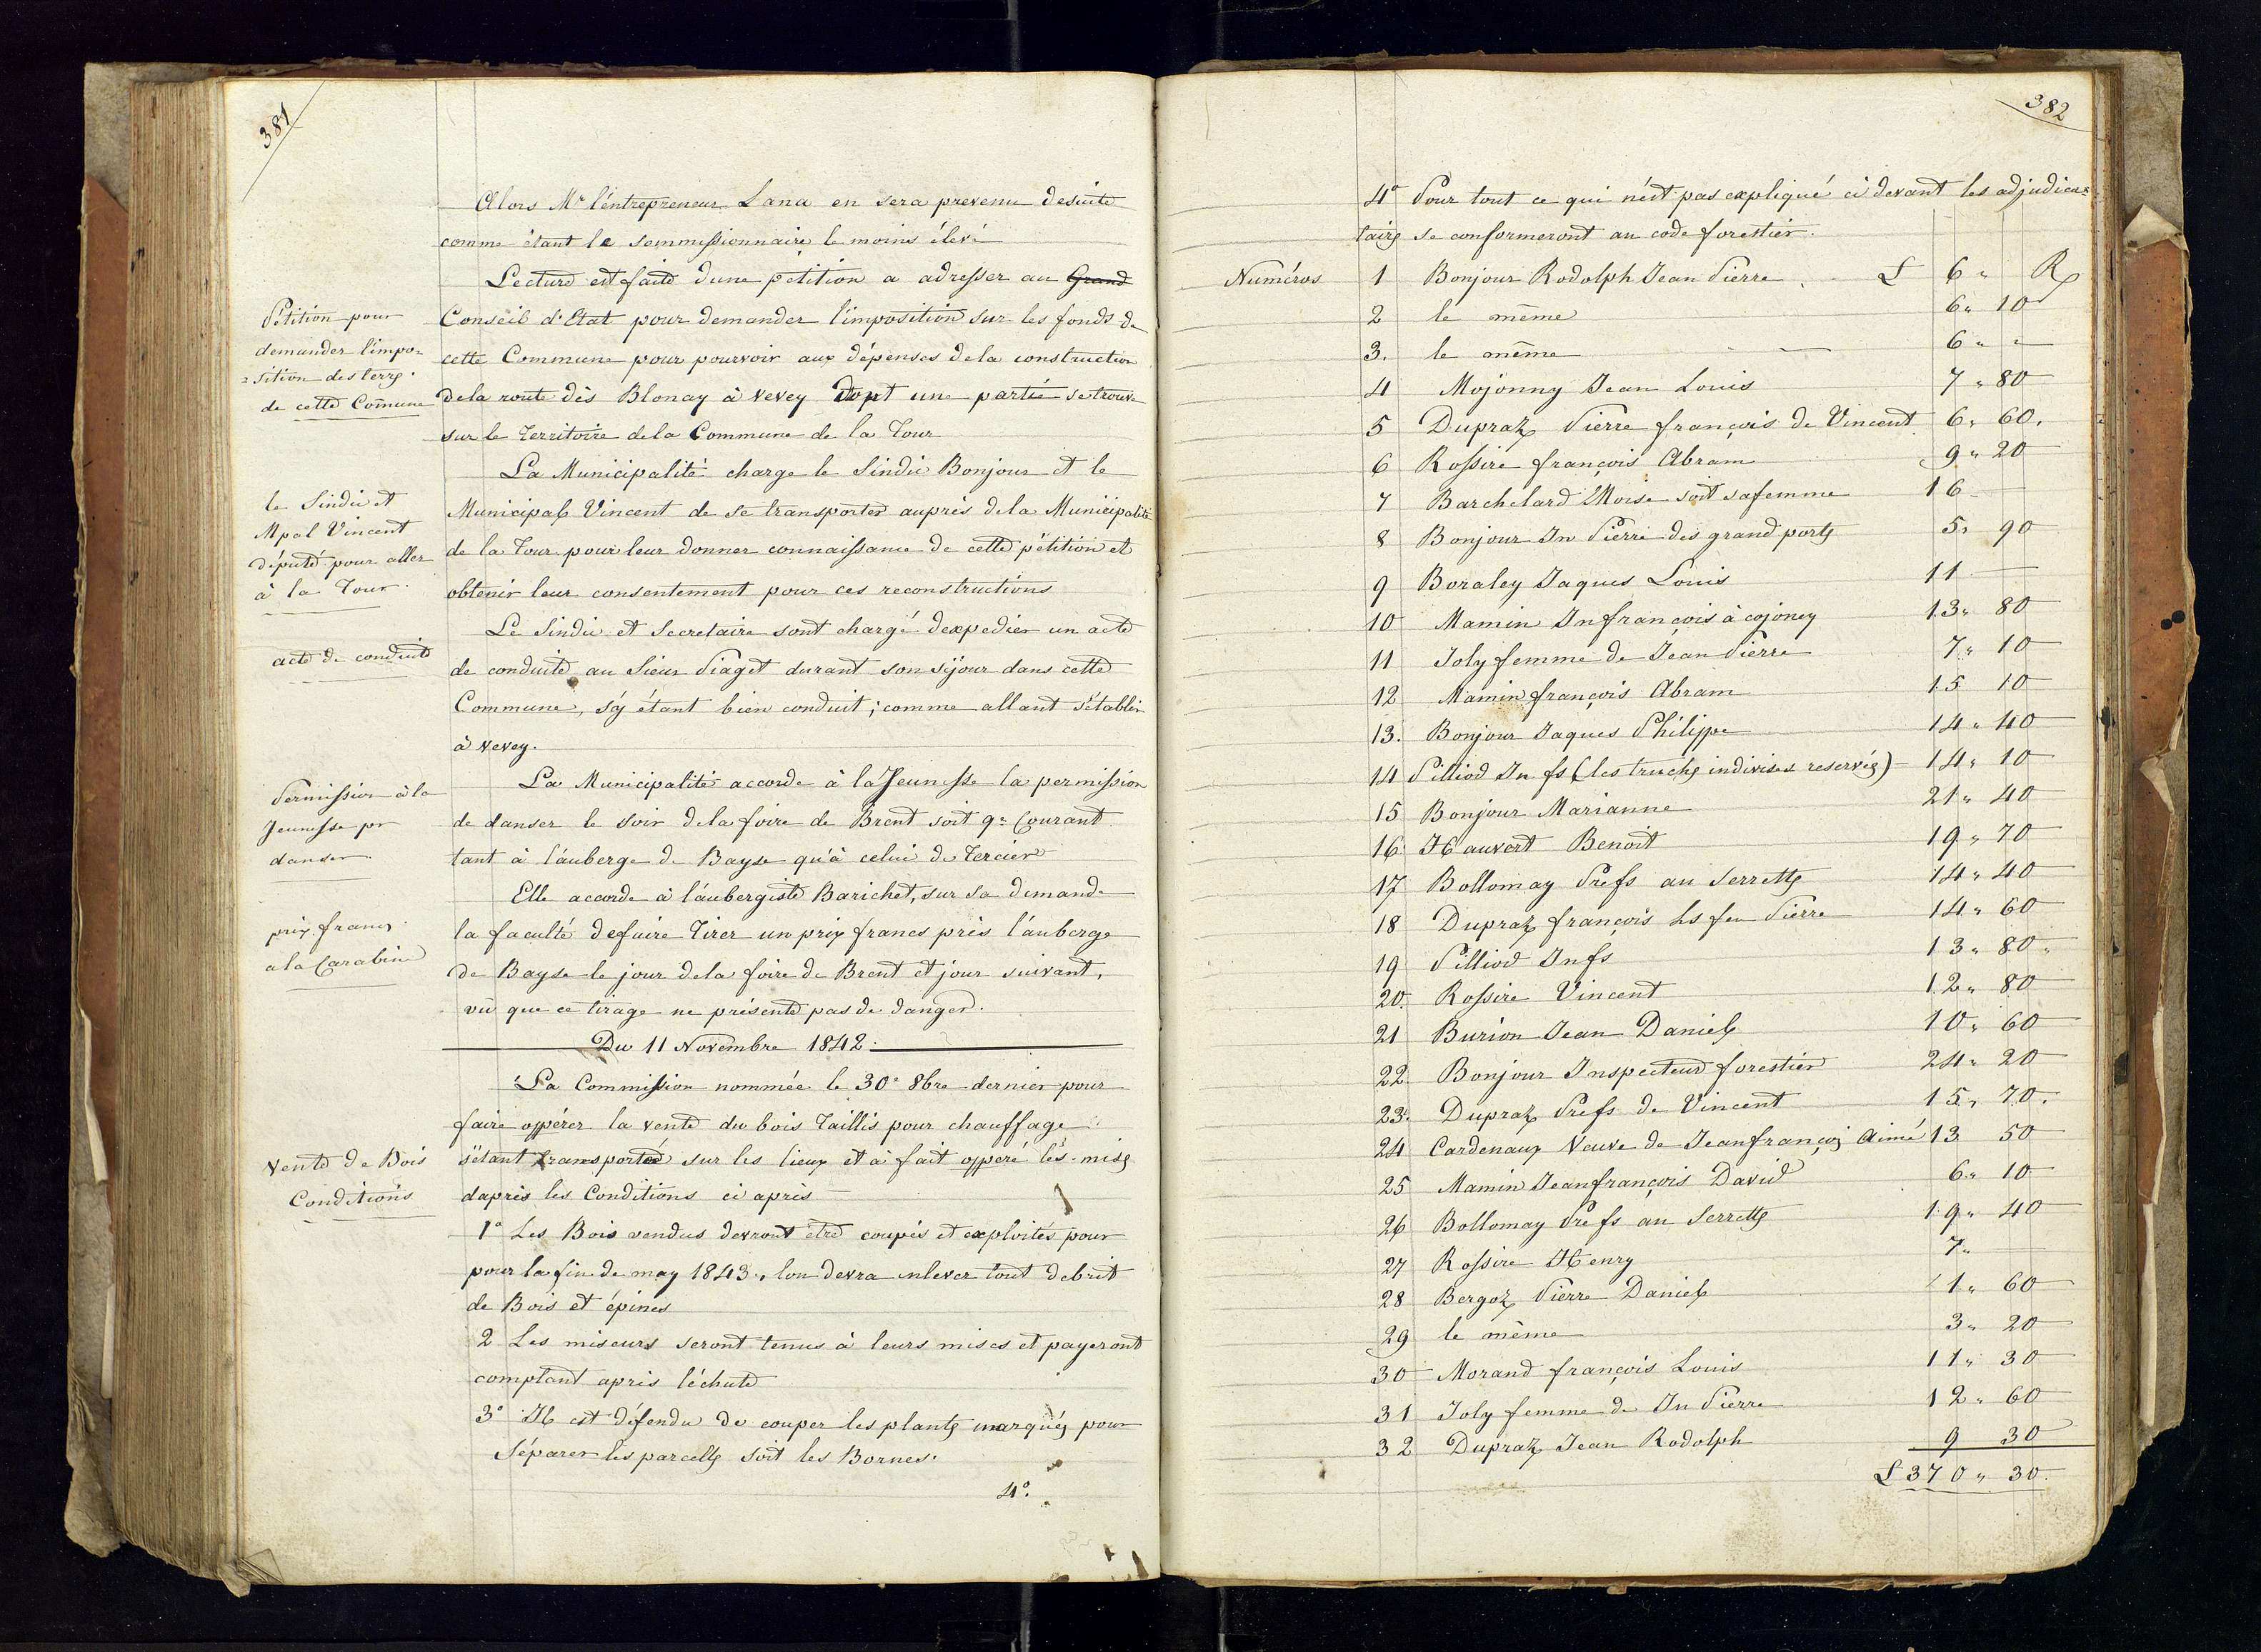 381
Alors Mr l'éntrepreneur Lana en sera prevenu desuite
comme étant le sommissionnaire le moins élevé
Lecture est faite d'une petition a adresser au Grand
Pétition pour
demander l'impo=
=sition des terrs.
de cette Comune
Conseil d'Etat pour demander l'imposition sur les fonds de
cette Commune pour pourvoir aux dépenses dela construction
dela route dès Blonay à Vevey dont une partie se trouve
sur le Territoire dela Commune de la Tour
La Municipalité charge le Sindic Bonjour et le
le Sindic et
Mpal Vincent
député pour aller
à la Tour.
Municipal Vincent de se transporter auprès dela Municipalité
de la Tour pour leur donner connaissance de cette pétition et
obtenir leur consentement pour ces reconstructions
Le Sindic et Secretaire sont chargé d'expedier un acte
acte de conduite
de conduite au Sieur Piaget durant son séjour dans cette
Commune, s'y étant bien conduit; comme allant s'établir
à Vevey.
La Municipalité accorde à la Jeunesse la permission
Permission à la
Jeunesse pr
danser.
de danser le soir dela foire de Brent soit 9e Courant
tant à l'auberge de Bayse qu'à celui de Tercier
Elle accorde à l'aubergiste Barichet, sur sa demande
prix francs
a la Carabine
la faculté defaire Tirer un prix francs près l'auberge
de Bayse le jour dela foire de Brent et jour suivant,
vû que ce tirage ne présente pas de danger.
Du 11 Novembre 1842.
La Commission nommée le 30e 8bre dernier pour
faire oppérer la vente du bois Taillis pour chauffage
Vente de Bois
Conditions
s'étant transporté sur les lieux et à fait opperé les mises
daprès les Conditions ci après
1° Les Bois vendus devront etre coupés et exploités pour
pour la fin de may 1843., lon devra enlever tout debrit
de Bois et épines
2 Les miseurs seront tenus à leurs mises et payeront
comptant apris l'échute
3° Il est défendu de couper les plants marqués pour
séparer les parcells soit les Bornes.
4°.
382
4° Pour tout ce qui n'est pas expliqué ci devant les adjudica=
tairs se conformeront au code forestier.
Numéros 1 Bonjour Rodolph Jean Pierre L 6 " Rp
2 le même 6 " 10
3. le même 6 " "
4 Mojonny Jean Louis 7 " 80
5 Dupraz Pierre françois de Vincent 6 " 60.
6 Rossire françois Abram 9 " 20
7 Barchelard Moise soit safemme 16 —
8 Bonjour Jn Pierre des grand ports 5 " 90
9 Boraley Jaques Louis 11 —
10 Mamin Jn françois à cojoney 13 " 80
11 Joly femme de Jean Pierre 7 " 10
12 Mamin françois Abram 15 10
13. Bonjour Jaques Philippe 14 " 40
14 Pilliod Jn fs (les truchs indivises reservés) 14 " 10
15 Bonjour Marianne 21 " 40
16. Hauvert Benoit 19 " 70
17 Bollomay Prefs au Serretts 14 " 40
18 Dupraz françois Ls feu Pierre 14 " 60
19 Pilliod Jnfs 13 " 80 "
20. Rossire Vincent 12 " 80
21 Burion Jean Daniel 10 " 60
22. Bonjour Inspecteur forestier 24 " 20
23. Dupraz Prefs de Vincent 15 " 70.
24 Cardenaux Veuve de Jeanfrançois Aimé 13 50
25 Mamin Jeanfrançois David 6 " 10
26 Bollomay Prefs au Serretts 19 " 40
27 Rossire Henry 7 "
28 Bergoz Pierre Daniel 1 " 60
29 le même 3 " 20
30 Morand françois Louis 11 " 30
31 Joly femme de Jn Pierre 12 " 60
32 Dupraz Jean Rodolph 9 30
L 370 " 30.